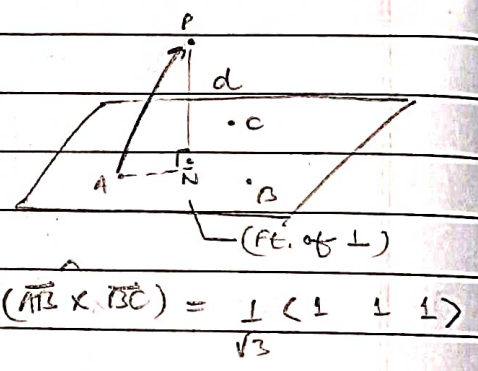 P
d
. C
A
N
. B
(Ft. of ⊥)
(AB × BC) = 1/√3 <1 1 1>